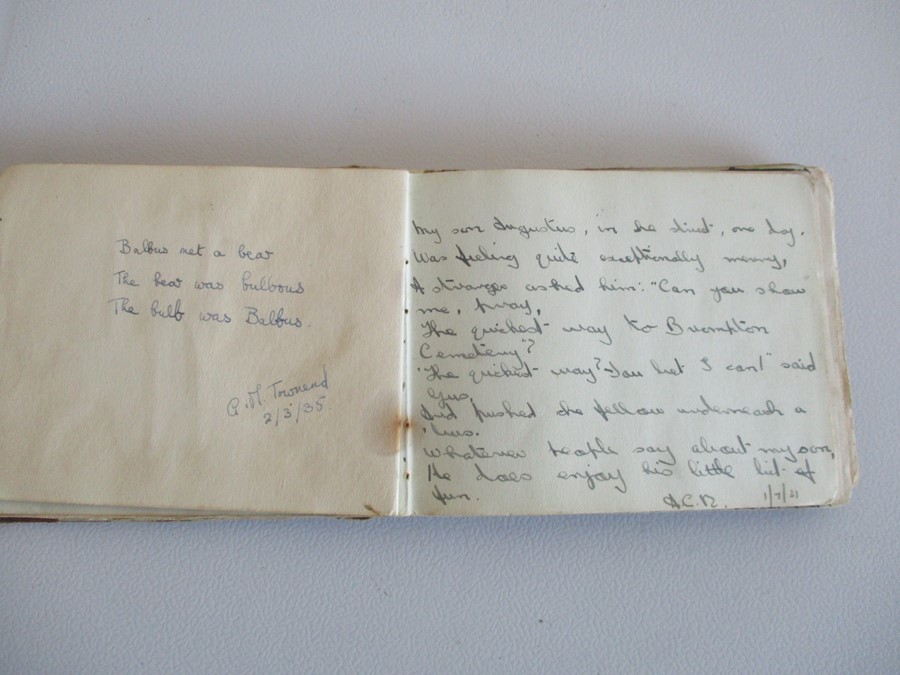 Balbus met a bear
The bear was bulbous
The bulb was Balbus.
A. M. Townend
2/3/35
My son Augustus, in the street, one day.
Was feeling quite exceptionally merry,
A stranger asked him: "Can you show
me, pray,
The quickest way to Brompton
Cemetery"?
"The quickest way? You bet I can!" said
Gus,
And pushed the fellow underneath a
'bus.
Whatever people say about my son,
He does enjoy his little bit of
fun.
1/7/21